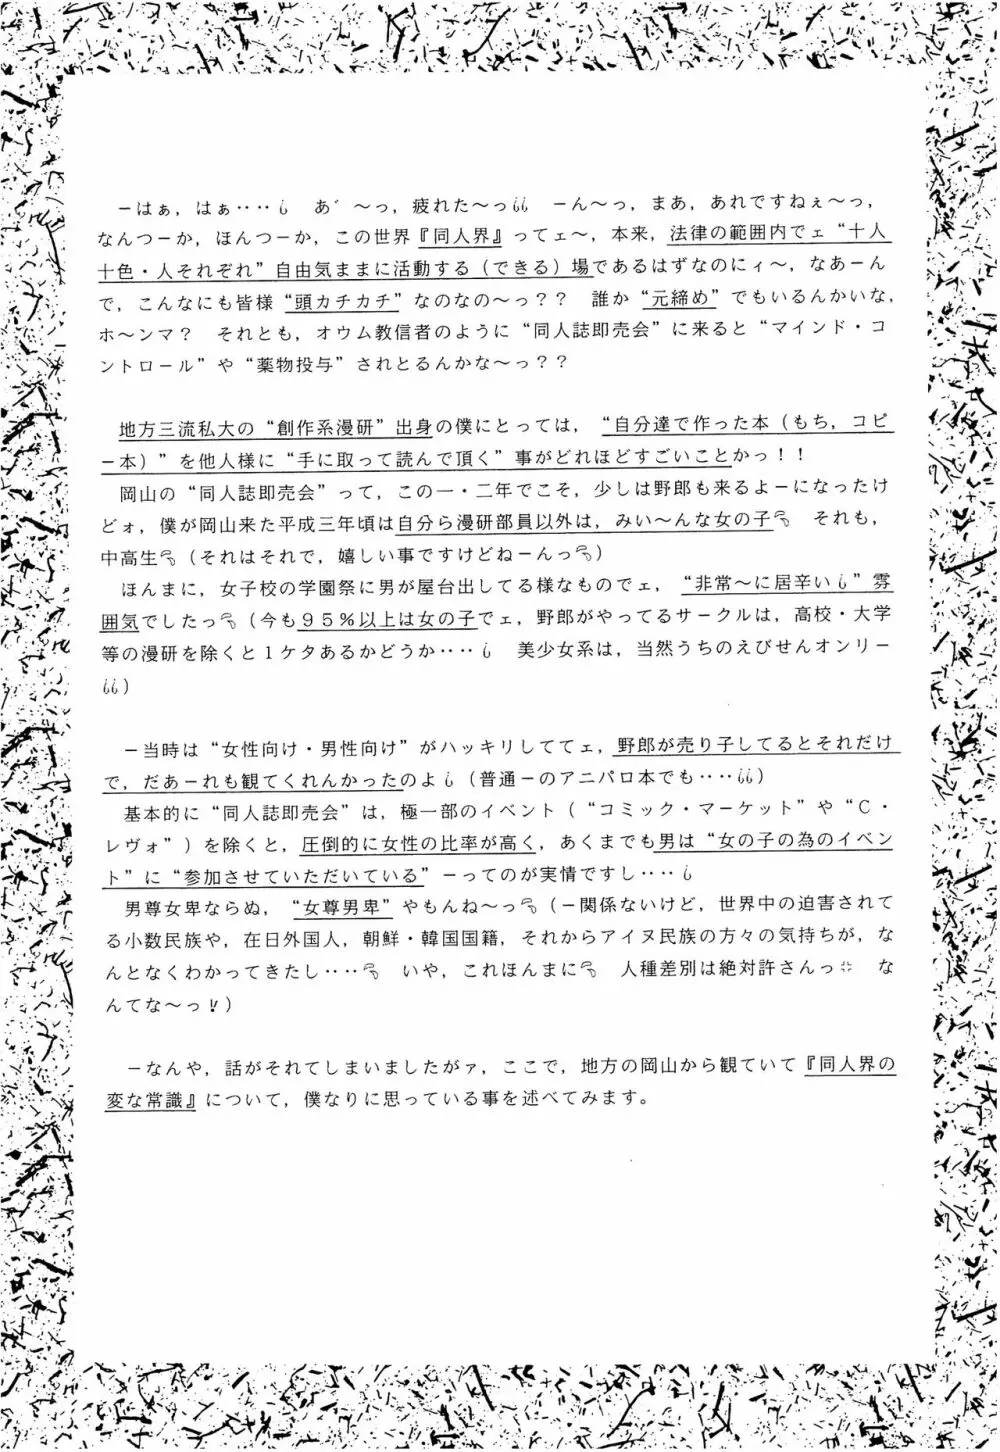 －はぁ，はぁ‥‥💧　あ゛～っ，疲れた～っ💧💧　－ん～っ，まあ，あれですねぇ～っ，
なんつーか，ほんつーか，この世界『同人界』ってェ～，本来，法律の範囲内でェ“十人
十色・人それぞれ”自由気ままに活動する（できる）場であるはずなのにィ～，なあーん
で，こんなにも皆様“頭カチカチ”なのなの～っ？？　誰か“元締め”でもいるんかいな，
ホ～ンマ？　それとも，オウム教信者のように“同人誌即売会”に来ると“マインド・コ
ントロール”や“薬物投与”されとるんかな～っ？？
地方三流私大の“創作系漫研”出身の僕にとっては，“自分達で作った本（もち，コピ
ー本）”を他人様に“手に取って読んで頂く”事がどれほどすごいことかっ！！
岡山の“同人誌即売会”って，この一・二年でこそ，少しは野郎も来るよーになったけ
どォ，僕が岡山来た平成三年頃は自分ら漫研部員以外は，みい～んな女の子💦　それも，
中高生💦（それはそれで，嬉しい事ですけどねーんっ💦）
ほんまに，女子校の学園祭に男が屋台出してる様なものでェ，“非常～に居辛い💧”雰
囲気でしたっ💦（今も９５％以上は女の子でェ，野郎がやってるサークルは，高校・大学
等の漫研を除くと１ケタあるかどうか‥‥💧　美少女系は，当然うちのえびせんオンリー
💧💧）
－当時は“女性向け・男性向け”がハッキリしててェ，野郎が売り子してるとそれだけ
で，だあーれも観てくれんかったのよ💧（普通－のアニパロ本でも‥‥💧💧）
基本的に“同人誌即売会”は，極一部のイベント（“コミック・マーケット”や“Ｃ・
レヴォ”）を除くと，圧倒的に女性の比率が高く，あくまでも男は“女の子の為のイベン
ト”に“参加させていただいている”－ってのが実情ですし‥‥💧
男尊女卑ならぬ，“女尊男卑”やもんね～っ💦（－関係ないけど，世界中の迫害されて
る小数民族や，在日外国人，朝鮮・韓国国籍，それからアイヌ民族の方々の気持ちが，な
んとなくわかってきたし‥‥💦　いや，これほんまに💦　人種差別は絶対許さんっ💢　な
んてな～っ！）
－なんや，話がそれてしまいましたがァ，ここで，地方の岡山から観ていて『同人界の
変な常識』について，僕なりに思っている事を述べてみます。